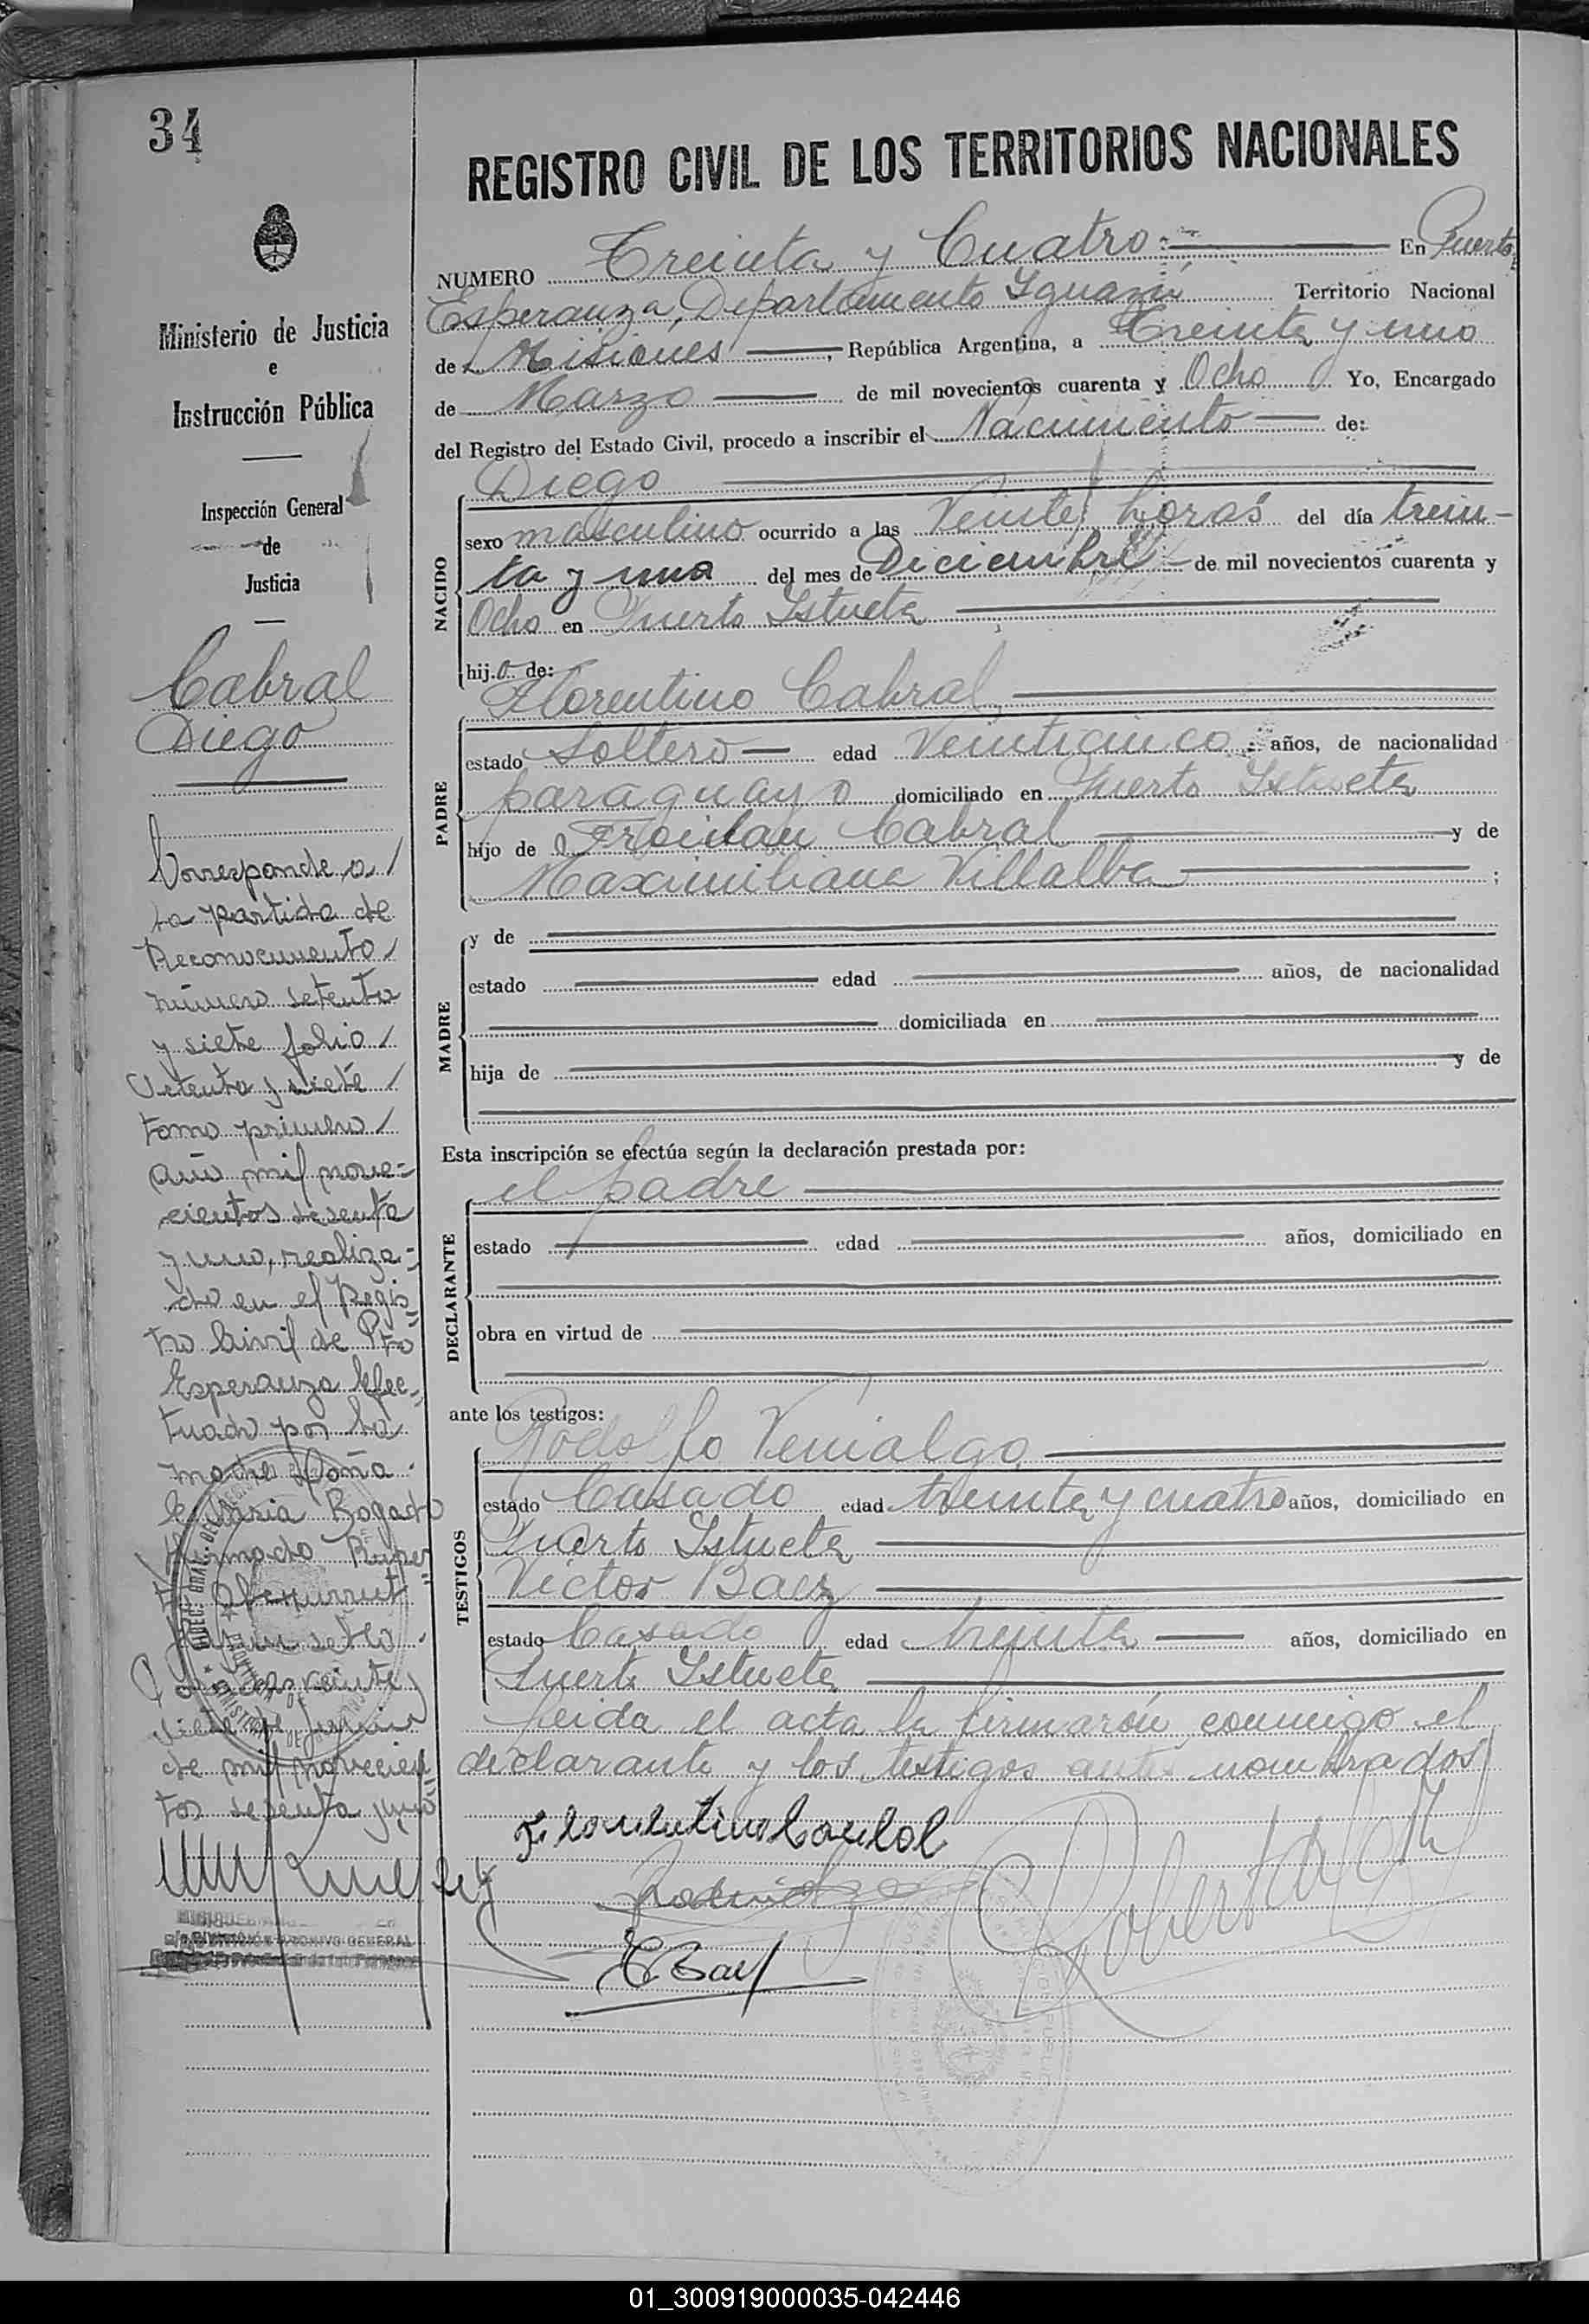 34
REGISTRO CIVIL DE LOS TERRITORIOS NACIONALES
NUMERO Treinta y Cuatro En Puerto
Esperanza, Departamento Iguazú Territorio Nacional
de Misiones, República Argentina, a Treinta y uno
de Marzo de mil novecientos cuarenta y Ocho Yo, Encargado
del Registro del Estado Civil, procedo a inscribir el Nacimiento de:
Diego
NACIDO
sexo masculino ocurrido a las Veinte horas del día trein-
ta y uno del mes de Diciembre de mil novecientos cuarenta y
Ocho en Puerto Istueta
hijo de:
Florentino Cabral
PADRE
estado Soltero edad Veinticinco años, de nacionalidad
paraguayo domiciliado en Puerto Istueta
hijo de Froilan Cabral y de
Maximiliana Villalba ;
MADRE
y de
estado edad años, de nacionalidad
domiciliada en
hija de y de
Esta inscripción se efectúa según la declaración prestada por:
el padre
DECLARANTE
estado edad años, domiciliado en
obra en virtud de
ante los testigos:
Rodolfo Venialgo
TESTIGOS
estado Casado edad treinta y cuatro años, domiciliado en
Puerto Istueta
Victor Baez
estado Casado edad treinta años, domiciliado en
Puerto Istueta
Leida el acta la firmarón conmigo el
declarante y los testigos antes nombrados
Florentino Cabral
Ministerio de Justicia
e
Instrucción Pública
Inspección General
de
Justicia
Cabral
Diego
Corresponde a
la partida de
Reconocimiento
número setenta
y siete folio
Setenta y siete
tomo primero
año mil nove=
cientos sesenta
y uno, realiza=
do en el Regis=
tro Civil de Pto
Esperanza efec=
tuado por la
madre Doña
Bogado
Firmado
veinte
siete de Junio
de mil novecien=
tos sesenta y uno
ARCHIVO GENERAL
01_300919000035-042446